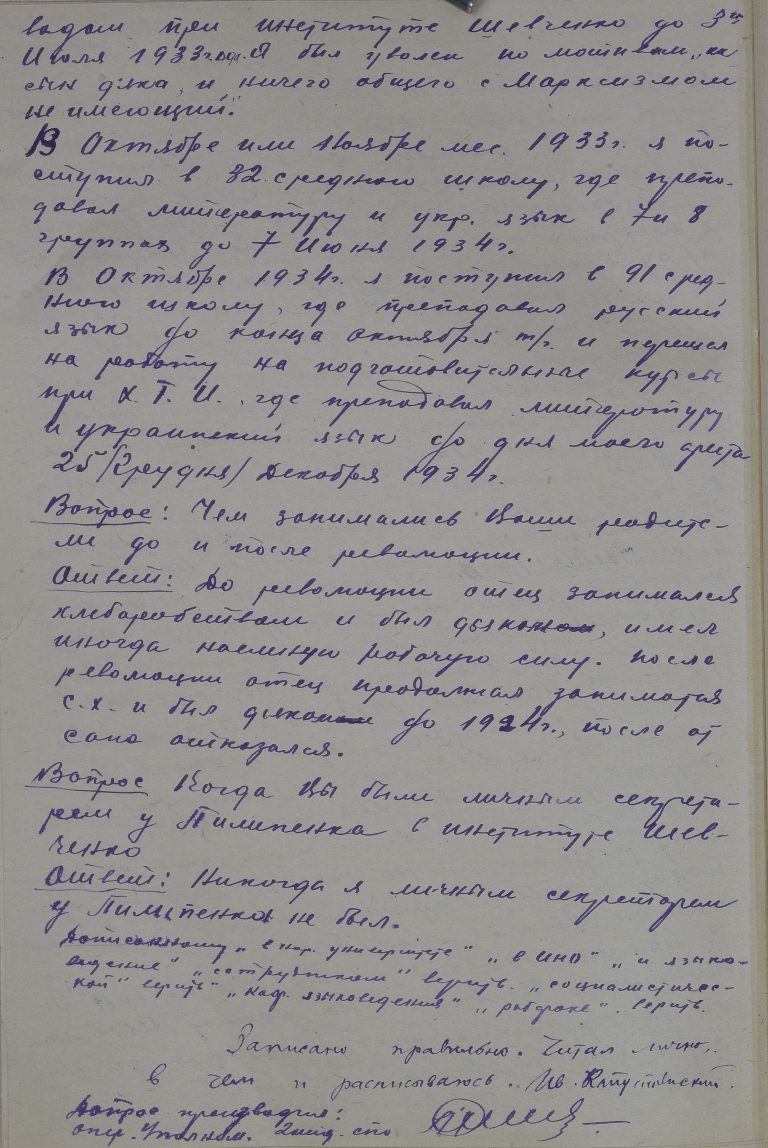 водом при институте Шевченко до 3го
Июля 1933 года. Я был уволен по мотивам „как
сын дяка, и ничего общего с Марксизмом
не имеющий".
В Октябре или Ноябре мес. 1933г. я по-
ступил в 82 среднюю школу, где препо-
давал литературу и укр. язык в 7 и 8
группах до 7 Июня 1934г.
В Октябре 1934г. я поступил в 91 сред-
нюю школу, где преподавал русский
язык до конца октября т/г. и перешел
на работу на подготовительные курсы
при Х.Т.И., где преподавал литературу
и украинский язык до дня моего ареста
25 /Грудня/ Декабря 1934г.
Вопрос: Чем занимались Ваши родите-
ли до и после революции.
Ответ: До революции отец занимался
хлебаробством и был дьяконом, имел
иногда наемную рабочую силу. После
революции отец продолжал заниматся
с.х. и был дьяконом до 1924г., после от
сана отказался.
Вопрос Когда Вы были личным секрета-
рем у Пилипенка в институте Шев-
ченко
Ответ: Никогда я личным секретарем
у Пилипенка не был.
Дописанному „в нар. университете" „в ИНО" „и языко-
ведение" „сотрудником" верить. „социалистичес-
кой" верить „каф. языковедения" „рабфаке". верить.
Записано правильно. Читал лично,
в чем и расписываюсь. Ив. Капустянский.
Допрос производил:
опер. Уполном. 2 отд. спо